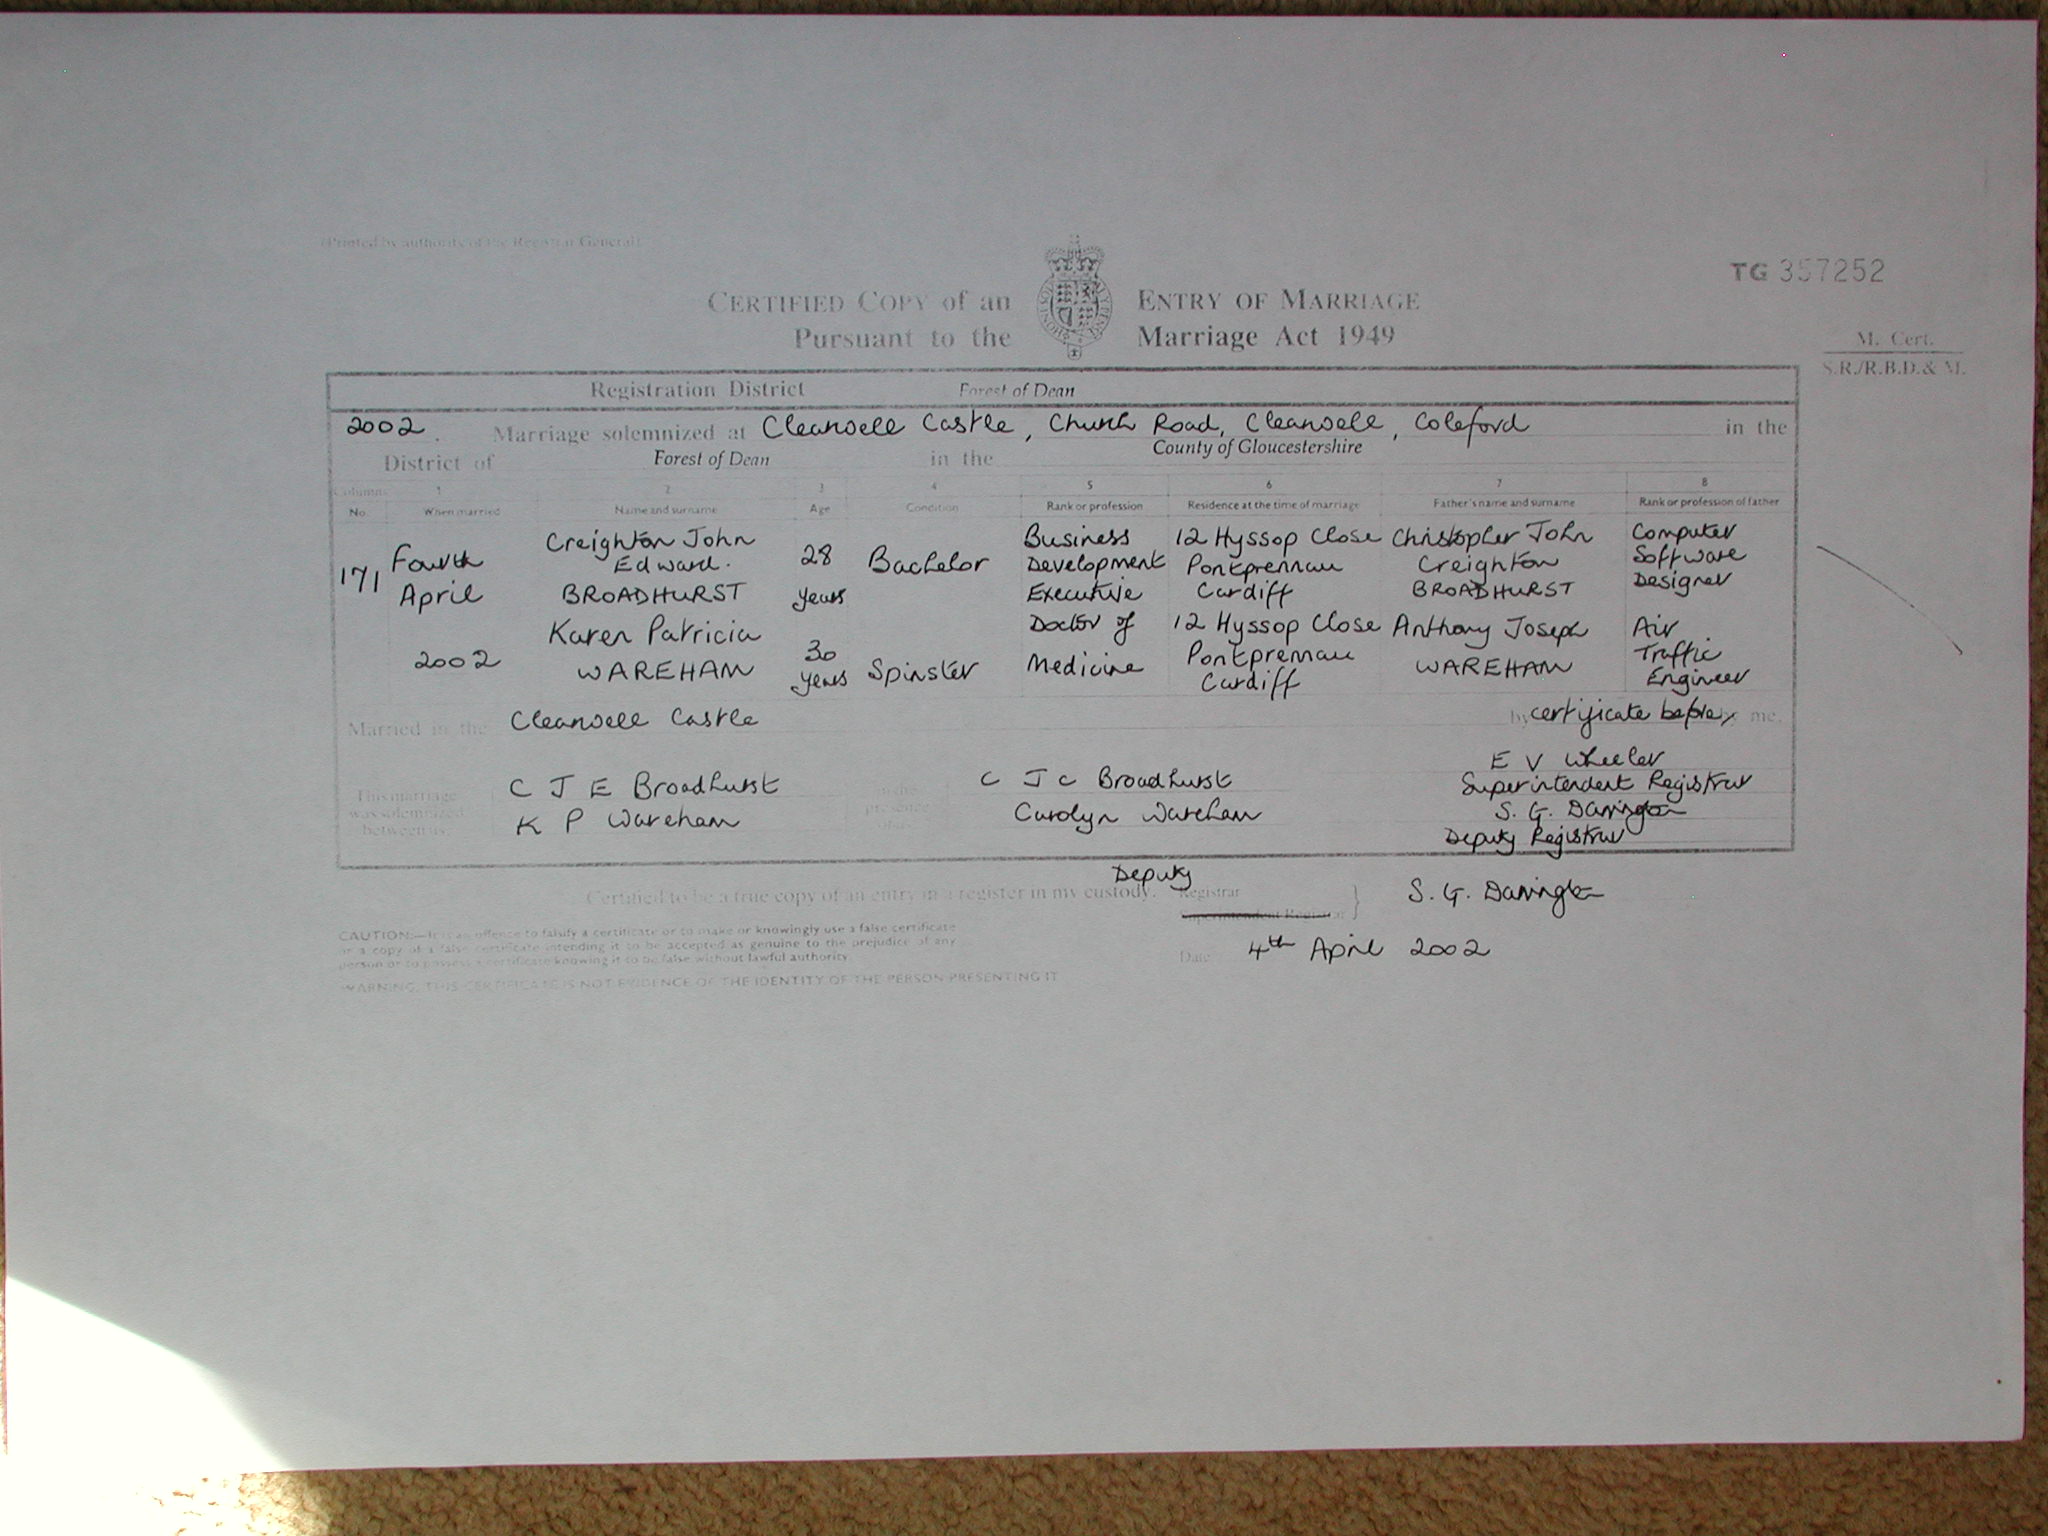 (Printed by authority of the Registrar General)
TG 357252
CERTIFIED COPY of an ENTRY OF MARRIAGE
Pursuant to the Marriage Act 1949
M. Cert.
S.R./R.B.D.& M.
Registration District Forest of Dean
2002. Marriage solemnized at Clearwell Castle, Church Road, Clearwell, Coleford in the
District of Forest of Dean in the County of Gloucestershire
Columns 1 2 3 4 5 6 7 8
No. When married Name and surname Age Condition Rank or profession Residence at the time of marriage Father's name and surname Rank or profession of father
171 Fourth April 2002
Creighton John
Edward.
BROADHURST
28
years
Bachelor
Business
Development
Executive
12 Hyssop Close
Pontprennau
Cardiff
Christopher John
Creighton
BROADHURST
Computer
Software
Designer
Karen Patricia
WAREHAM
30
years
Spinster
Doctor of
Medicine
12 Hyssop Close
Pontprennau
Cardiff
Anthony Joseph
WAREHAM
Air
Traffic
Engineer
Married in the Clearwell Castle by certificate before me,
This marriage
was solemnized
between us,
C J E Broadhurst
K P Wareham
in the
presence
of us,
C J C Broadhurst
Carolyn Wareham
E V Wheeler
Superintendent Registrar
S. G. Darrington
Deputy Registrar
Deputy
Certified to be a true copy of an entry in a register in my custody. Registrar
Superintendent Registrar
S. G. Darrington
Date 4th April 2002
CAUTION:—It is an offence to falsify a certificate or to make or knowingly use a false certificate
or a copy of a false certificate intending it to be accepted as genuine to the prejudice of any
person or to possess a certificate knowing it to be false without lawful authority.
WARNING: THIS CERTIFICATE IS NOT EVIDENCE OF THE IDENTITY OF THE PERSON PRESENTING IT